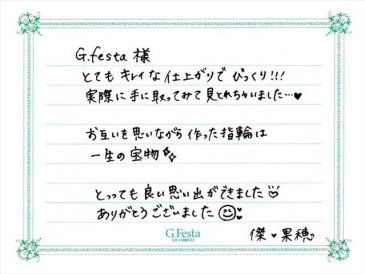 G.festa 様
とてもキレイな仕上がりでびっくり!!!
実際に手に取ってみて見とれちゃいました…♥
お互いを思いながら作った指輪は
一生の宝物✨
とっても良い思い出ができました
ありがとうございました☺♥
G.Festa
DIAMOND
傑・果穂